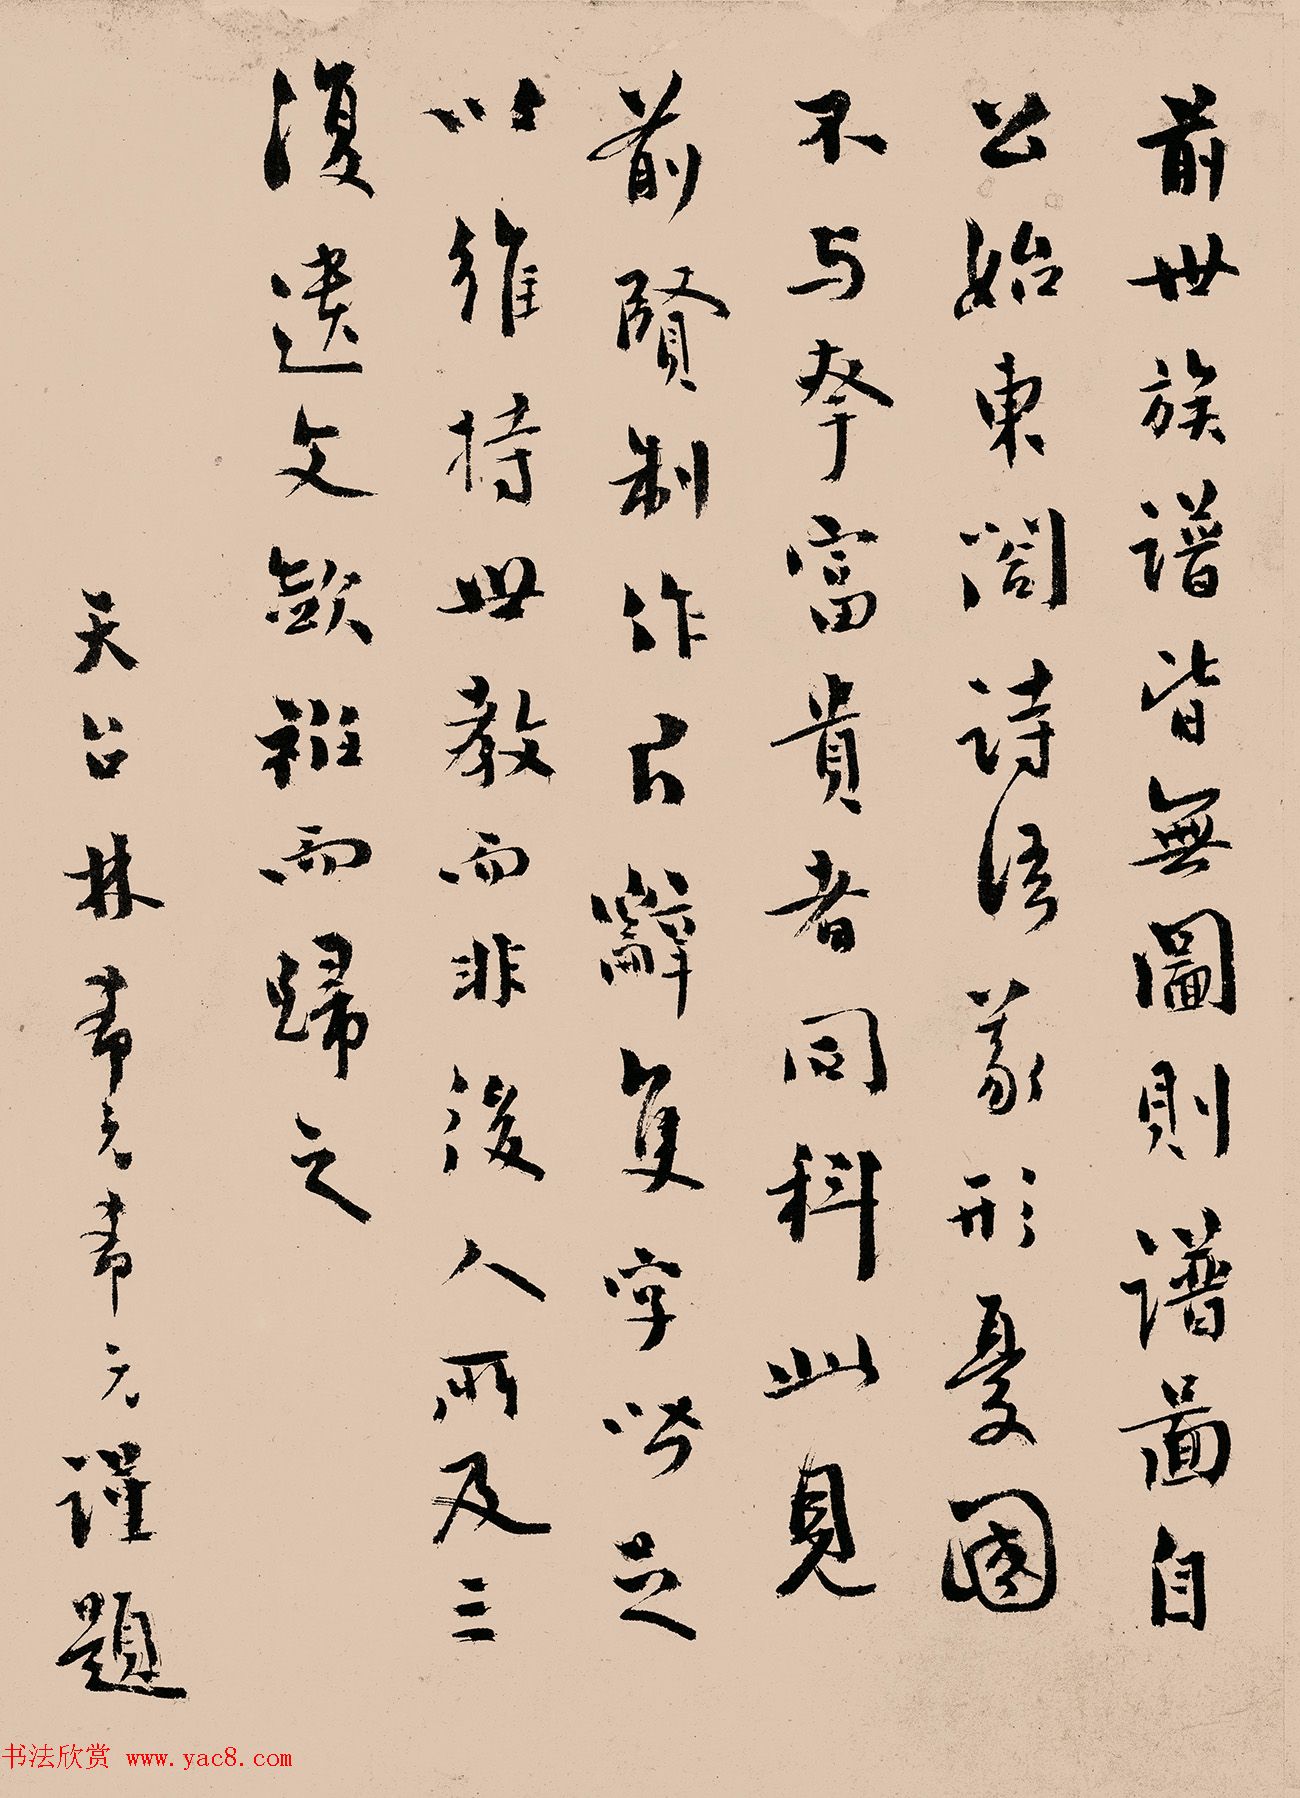 前世族譜皆無圖則譜啚自
公始東閣詩語篆形憂國
不与挛富貴者同科此見
前賢制作片辭隻字皆足
以維持世教而非後人所及三
復遺文歛袵而歸之
天台林希元希元謹題
书法欣赏 www.yac8.com